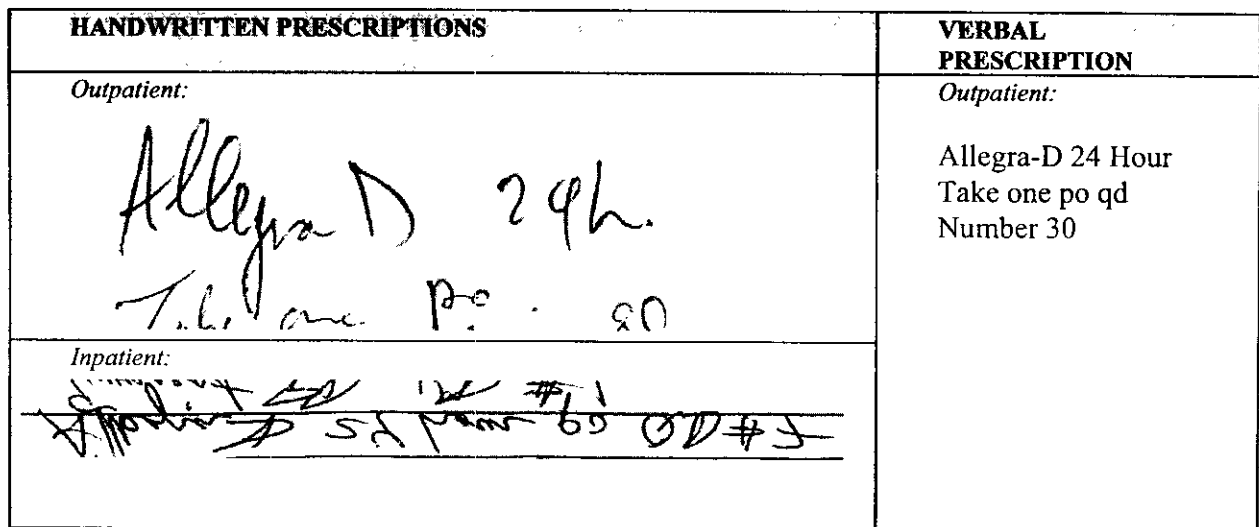 HANDWRITTEN PRESCRIPTIONS
VERBAL
PRESCRIPTION
Outpatient:
Allegra D 24h.
Take one po QD
Inpatient:
Outpatient:
Allegra-D 24 Hour
Take one po qd
Number 30